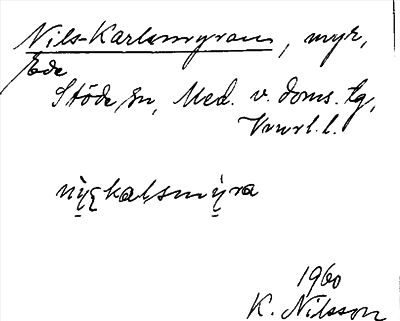 Nils-Karlsmyran, myr,
Ede
Stöde sn, Med. v. doms. tg,
Vnrl. l.
1960
K. Nilsson